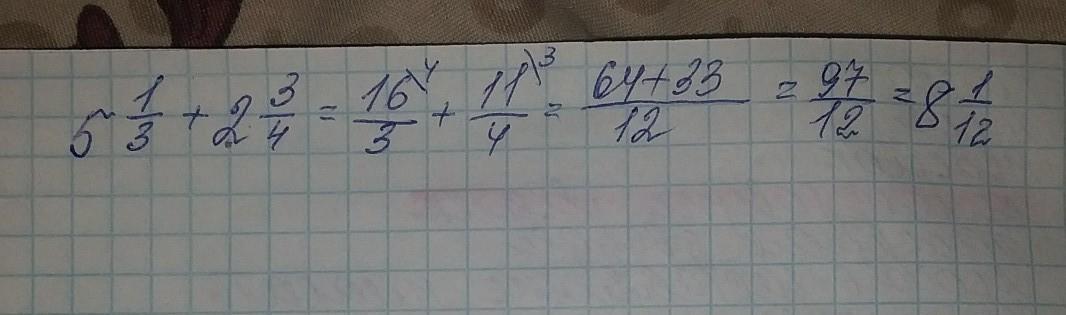 5 1/3 + 2 3/4 = 16\4/3 + 11\3/4 = 64+33/12 = 97/12 = 8 1/12